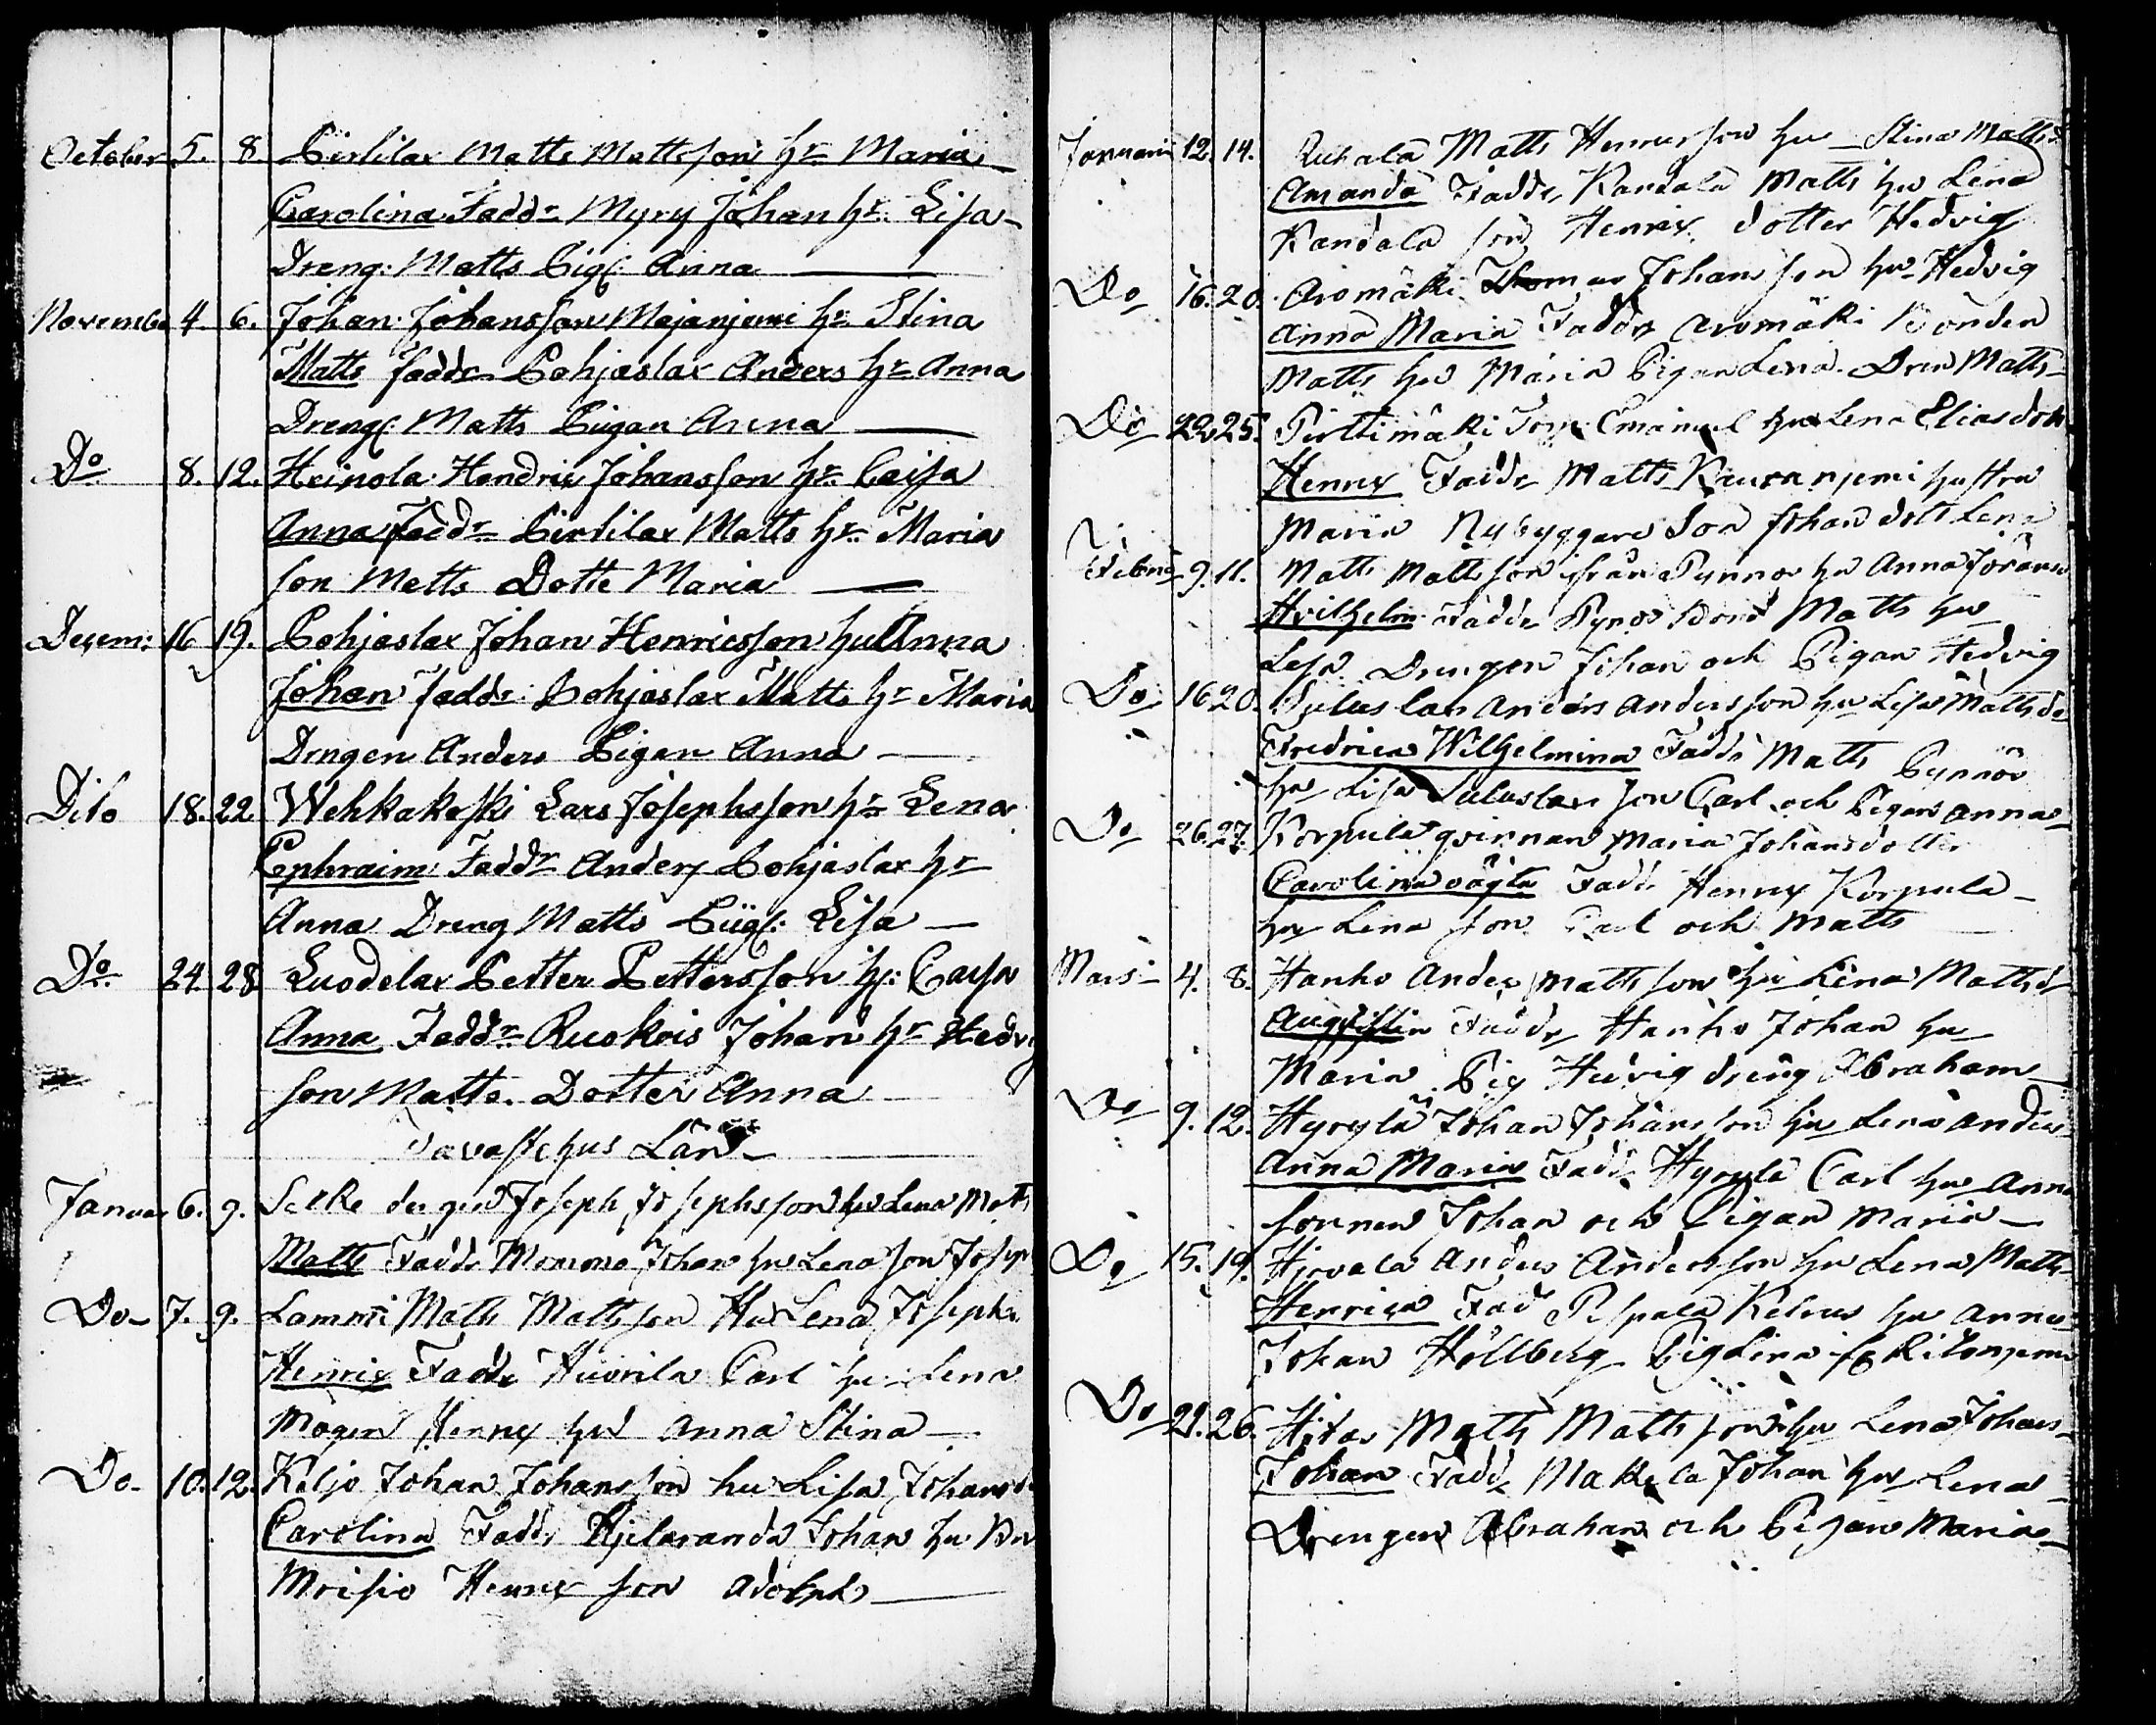 October 5. 8. Pirtilax Matts Mattsson hr Maria
Carolina Faddr Myry Johan hr Lisa
Dreng: Matts Pig: Anna
November 4. 6. Johan Johansson Majanjemi hr Stina
Matts faddr Pohjaslax Anders hr Anna
Dreng: Matts Pigan Anna
Do 8. 12. Heinola Hendrix Johansson hr Caisa
Anna Faddr Pirtilax Matts hr Maria
son Matts Dotte Maria
Decem: 16 19. Pohjaslax Johan Henricsson hu Anna
Johan faddr: Pohjaslax Matts hr Maria
Drngen Anders Pigan Anna
Dito 18. 22 Wehkakoski Lars Josephsson hr Lena
Ephraim Faddr Anders Pohjaslax hr
Anna Dreng Matts Piig: Lisa
Do. 24. 28 Luodelax Petter Pettersson h: Caisa
Anna Faddr Ruokois Johan hr Hedvig
son Matts. Dotter Anna
Tavastehus Län
Januar 6. 9. Joseph Josephsson hu Lena Matts
Matts Fadd Momma Johan hu Lena son Josep
Do 7. 9. Lammi Matts Mattsson Hu Lena Josephs
Henrix Fadd Huorila Carl hu Lena
Mågen Henrix hu Anna Stina
Do 10. 12. Keljo Johan Johansson hu Lisa Johansd
Carolina Fadd Johan hu
Henrix son Adolph
Januari 12. 14. Matts Henricsson hu Stina Mattsd
Amanda Fadd Kandala Matts hu Lena
Kandala son Henrix dotter Hedvig
Do 16. 20. Aromäki Thomas Johansson hu Hedvig
Anna Maria Fadd Aromäki Bonden
Matts hu Maria Pigan Lena Dren Matts
Do 22 25. Pirttimäki Torp Emanuel hu Lena Eliasdott
Henrix Fadd Matts Kauranjemi hustru
Maria Nybyggare Son Johan dott Lena
Febru 9. 11. Matts Mattsson från Pynnö hu Anna Jörans
Wilhelm Fadd Pynnö Bond Matts hu
Lisa Drengen Johan och Pigan Hedvig
Do 16 20. Anders Andersson hu Lisa Mattsd
Fredrica Wilhelmina Fadd Matts Pynnöö
hu Lisa son Carl och Pigan Anna
Do 26. 27. Korpula qvinnan Maria Johansdotter
Carolina oägta Fadd Henrix Korpula
hu Lena son Carl och Matts
Mars 4. 8. Hanho Anders Mattsson hu Lena Mattsd
Augustin Fadd Hanho Johan hu
Maria Pig Hedvig dreng Abraham
Do 9. 12. Hyrylä Johan Johansson hu Lena Anders
Anna Maria Fadd Hyrylä Carl hu Anna
sonnen Johan och Pigan Maria
Do 15. 19. Anders Andersson hu Lena Matts
Henrica Fad hu Anna
Johan Hollberg Pig Lena
Do 21. 26. Matts Mattsson hu Lena Johans
Johan Fadd Makela Johan hu Lena
Drengen Abraham och Pigan Maria